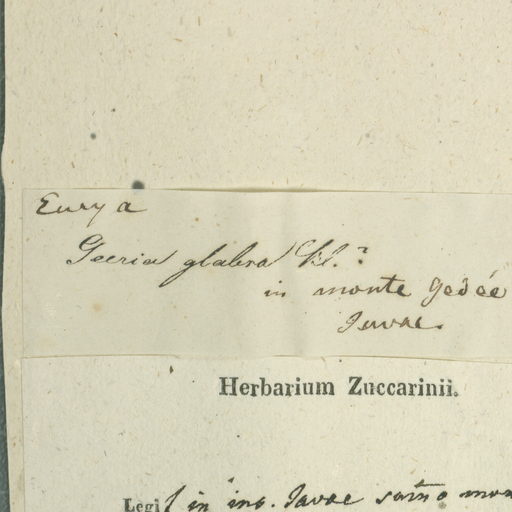 Eurya
Geeria glabra Bl.?
in monte Gedée
Javae.
Herbarium Zuccarinii.
Legit in ins. Javae